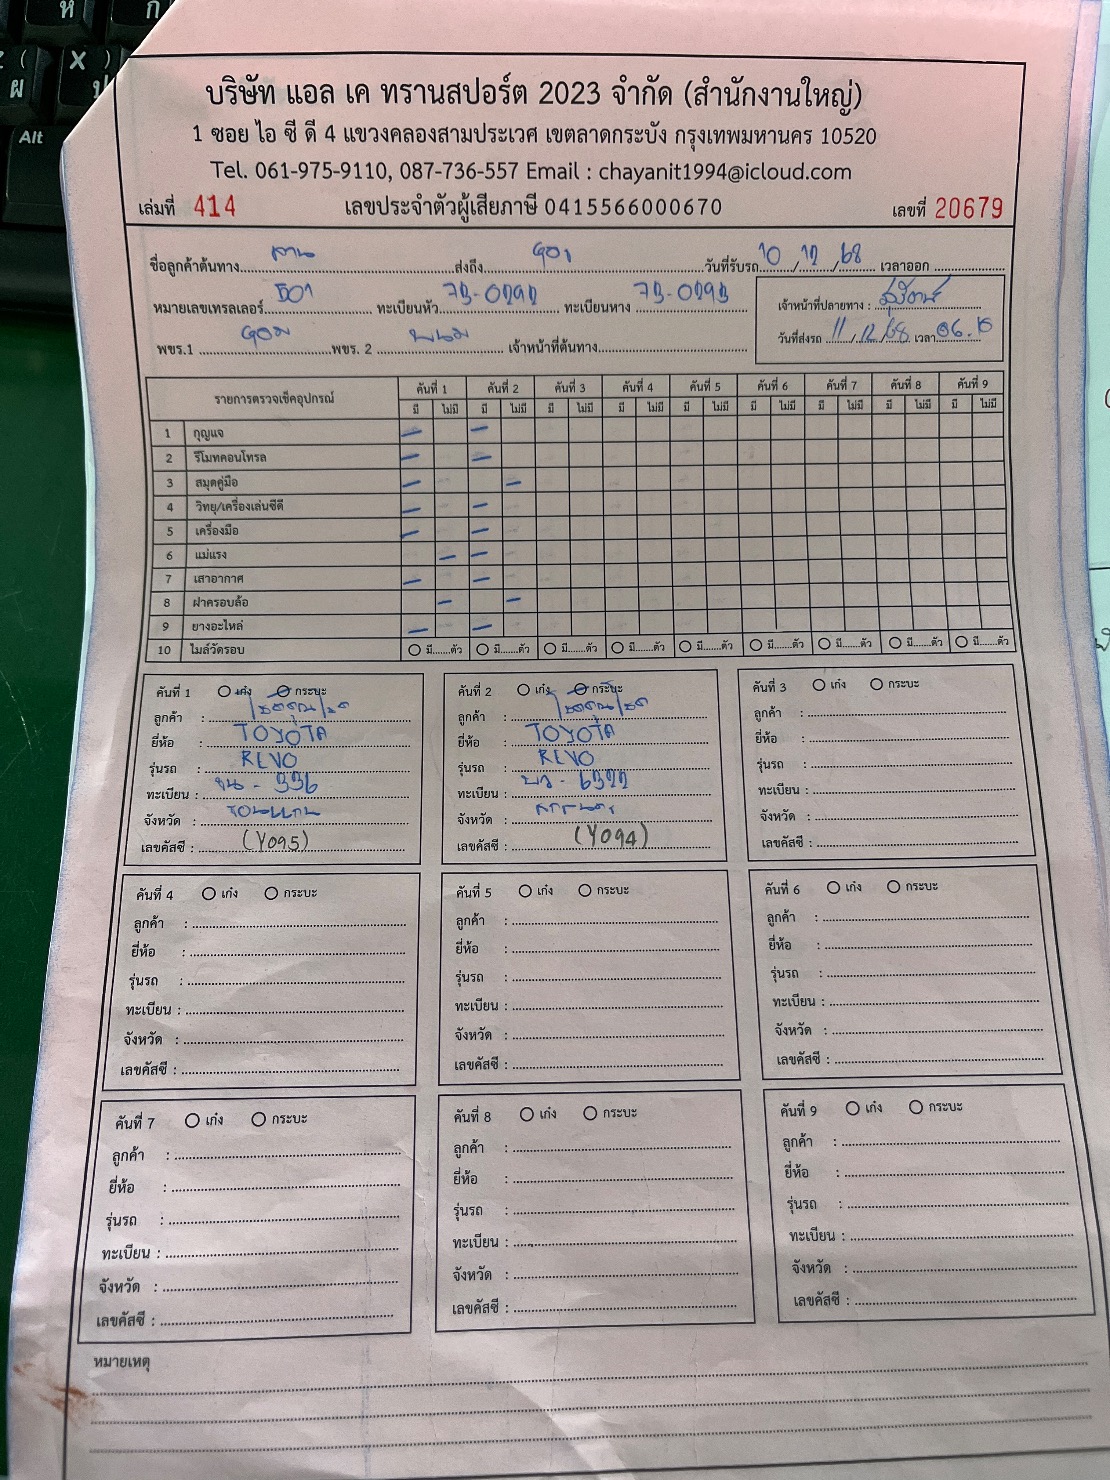 บริษัท แอล เค ทรานสปอร์ต 2023 จำกัด (สำนักงานใหญ่)
1 ซอย ไอ ซี ดี 4 แขวงคลองสามประเวศ เขตลาดกระบัง กรุงเทพมหานคร 10520
Tel. 061-975-9110, 087-736-557 Email : chayanit1994@icloud.com
เล่มที่ 414 เลขประจำตัวผู้เสียภาษี 0415566000670 เลขที่ 20679
ชื่อลูกค้าต้นทาง ลาน ส่งถึง วันที่รับรถ 10/12/68 เวลาออก
หมายเลขเทรลเลอร์ 501 ทะเบียนหัว ทะเบียนหาง เจ้าหน้าที่ปลายทาง :
พขร.1 พขร. 2 พนม เจ้าหน้าที่ต้นทาง วันที่ส่งรถ 11/12/68 เวลา 06.10
รายการตรวจเช็คอุปกรณ์ คันที่ 1 คันที่ 2 คันที่ 3 คันที่ 4 คันที่ 5 คันที่ 6 คันที่ 7 คันที่ 8 คันที่ 9
มี ไม่มี มี ไม่มี มี ไม่มี มี ไม่มี มี ไม่มี มี ไม่มี มี ไม่มี มี ไม่มี มี ไม่มี
1 กุญแจ
2 รีโมทคอนโทรล
3 สมุดคู่มือ
4 วิทยุ/เครื่องเล่นซีดี
5 เครื่องมือ
6 แม่แรง
7 เสาอากาศ
8 ฝาครอบล้อ
9 ยางอะไหล่
10 ไมล์วัดรอบ มี......ตัว มี......ตัว มี......ตัว มี......ตัว มี......ตัว มี......ตัว มี......ตัว มี......ตัว มี......ตัว
คันที่ 1 เก๋ง กระบะ
ลูกค้า :
ยี่ห้อ : TOYOTA
รุ่นรถ : REVO
ทะเบียน :
จังหวัด : ขอนแก่น
เลขคัสซี : (Y095)
คันที่ 2 เก๋ง กระบะ
ลูกค้า :
ยี่ห้อ : TOYOTA
รุ่นรถ : REVO
ทะเบียน :
จังหวัด : สกลนคร
เลขคัสซี : (Y094)
คันที่ 3 เก๋ง กระบะ
ลูกค้า :
ยี่ห้อ :
รุ่นรถ :
ทะเบียน :
จังหวัด :
เลขคัสซี :
คันที่ 4 เก๋ง กระบะ
ลูกค้า :
ยี่ห้อ :
รุ่นรถ :
ทะเบียน :
จังหวัด :
เลขคัสซี :
คันที่ 5 เก๋ง กระบะ
ลูกค้า :
ยี่ห้อ :
รุ่นรถ :
ทะเบียน :
จังหวัด :
เลขคัสซี :
คันที่ 6 เก๋ง กระบะ
ลูกค้า :
ยี่ห้อ :
รุ่นรถ :
ทะเบียน :
จังหวัด :
เลขคัสซี :
คันที่ 7 เก๋ง กระบะ
ลูกค้า :
ยี่ห้อ :
รุ่นรถ :
ทะเบียน :
จังหวัด :
เลขคัสซี :
คันที่ 8 เก๋ง กระบะ
ลูกค้า :
ยี่ห้อ :
รุ่นรถ :
ทะเบียน :
จังหวัด :
เลขคัสซี :
คันที่ 9 เก๋ง กระบะ
ลูกค้า :
ยี่ห้อ :
รุ่นรถ :
ทะเบียน :
จังหวัด :
เลขคัสซี :
หมายเหตุ
Alt